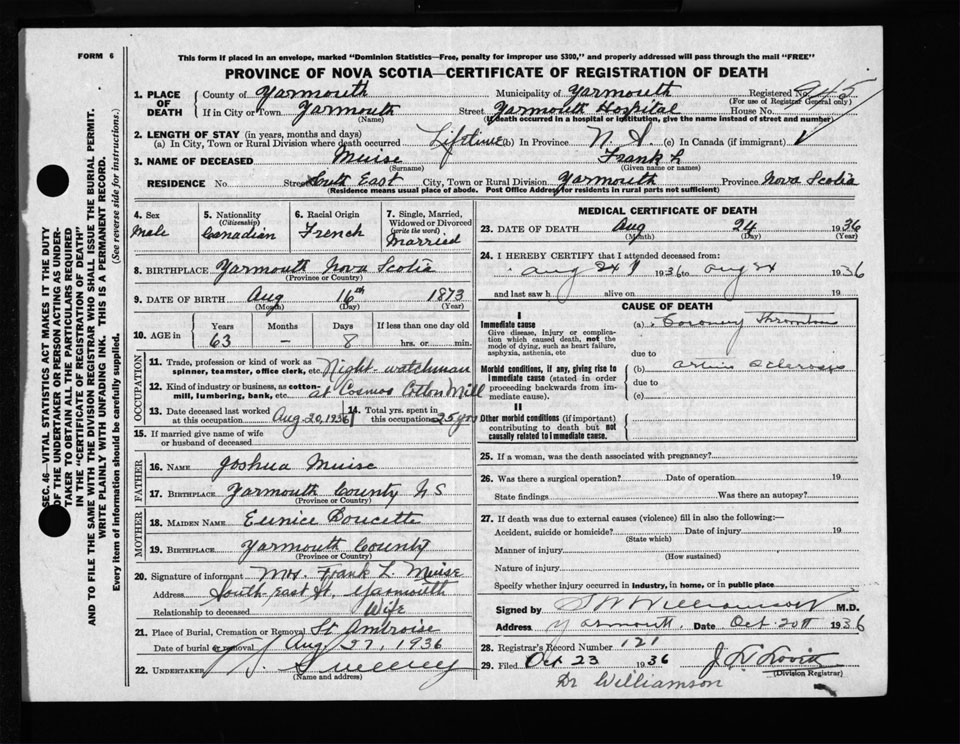 FORM 6
This form if placed in an envelope, marked "Dominion Statistics—Free, penalty for improper use $300," and properly addressed will pass through the mail "FREE"
PROVINCE OF NOVA SCOTIA—CERTIFICATE OF REGISTRATION OF DEATH
SEC. 46—VITAL STATISTICS ACT MAKES IT THE DUTY
OF THE UNDERTAKER OR PERSON ACTING AS UNDER-
TAKER TO OBTAIN ALL THE PARTICULARS REQUIRED
IN THE "CERTIFICATE OF REGISTRATION OF DEATH"
AND TO FILE THE SAME WITH THE DIVISION REGISTRAR WHO SHALL ISSUE THE BURIAL PERMIT.
WRITE PLAINLY WITH UNFADING INK. THIS IS A PERMANENT RECORD.
Every item of information should be carefully supplied. (See reverse side for instructions.)
1. PLACE OF DEATH
County of Yarmouth Municipality of Yarmouth Registered No. 945
(For use of Registrar General only)
If in City or Town Yarmouth Street Yarmouth Hospital House No.
(Name) (If death occurred in a hospital or institution, give the name instead of street and number)
2. LENGTH OF STAY (in years, months and days)
(a) In City, Town or Rural Division where death occurred Lifetime (b) In Province N. S. (c) In Canada (if immigrant)
3. NAME OF DECEASED Muise Frank L
(Surname) (Given name or names)
RESIDENCE No. Street South East City, Town or Rural Division Yarmouth Province Nova Scotia
(Residence means usual place of abode. Post Office Address for residents in rural parts not sufficient)
4. Sex Male
5. Nationality (Citizenship) Canadian
6. Racial Origin French
7. Single, Married, Widowed or Divorced (write the word) Married
8. BIRTHPLACE Yarmouth Nova Scotia
(Province or Country)
9. DATE OF BIRTH Aug 16th 1873
(Month) (Day) (Year)
10. AGE in Years Months Days If less than one day old
63 – 8 hrs. or min.
OCCUPATION
11. Trade, profession or kind of work as spinner, teamster, office clerk, etc. Night-watchman
12. Kind of industry or business, as cotton-mill, lumbering, bank, etc. at Cosmos Cotton Mill
13. Date deceased last worked at this occupation Aug. 20, 1936
14. Total yrs. spent in this occupation 25 yrs
15. If married give name of wife or husband of deceased
FATHER
16. NAME Joshua Muise
17. BIRTHPLACE Yarmouth County NS
(Province or Country)
MOTHER
18. MAIDEN NAME Eunice Doucette
19. BIRTHPLACE Yarmouth County
(Province or Country)
20. Signature of informant Mrs. Frank L Muise
Address South-East St. Yarmouth
Relationship to deceased Wife
21. Place of Burial, Cremation or Removal St Ambroise
Date of burial or removal Aug 27, 1936
22. UNDERTAKER Sweeney
(Name and address)
MEDICAL CERTIFICATE OF DEATH
23. DATE OF DEATH Aug 24 1936
(Month) (Day) (Year)
24. I HEREBY CERTIFY that I attended deceased from:
Aug 24 1936 to Aug 24 1936
and last saw h alive on 19
CAUSE OF DEATH
I
Immediate cause
Give disease, injury or complication which caused death, not the mode of dying, such as heart failure, asphyxia, asthenia, etc
(a) Coronary Thrombosis
due to
Morbid conditions, if any, giving rise to immediate cause (stated in order proceeding backwards from immediate cause).
(b) Arterio Sclerosis
due to
(c)
II
Other morbid conditions (if important) contributing to death but not causally related to immediate cause.
25. If a woman, was the death associated with pregnancy?
26. Was there a surgical operation? Date of operation 19
State findings Was there an autopsy?
27. If death was due to external causes (violence) fill in also the following:—
Accident, suicide or homicide? Date of injury 19
(State which)
Manner of injury
(How sustained)
Nature of injury
Specify whether injury occurred in industry, in home, or in public place
Signed by S W Williamson M.D.
Address Yarmouth, Date Oct 20th 1936
28. Registrar's Record Number 121
29. Filed Oct 23 1936
(Division Registrar)
Dr Williamson